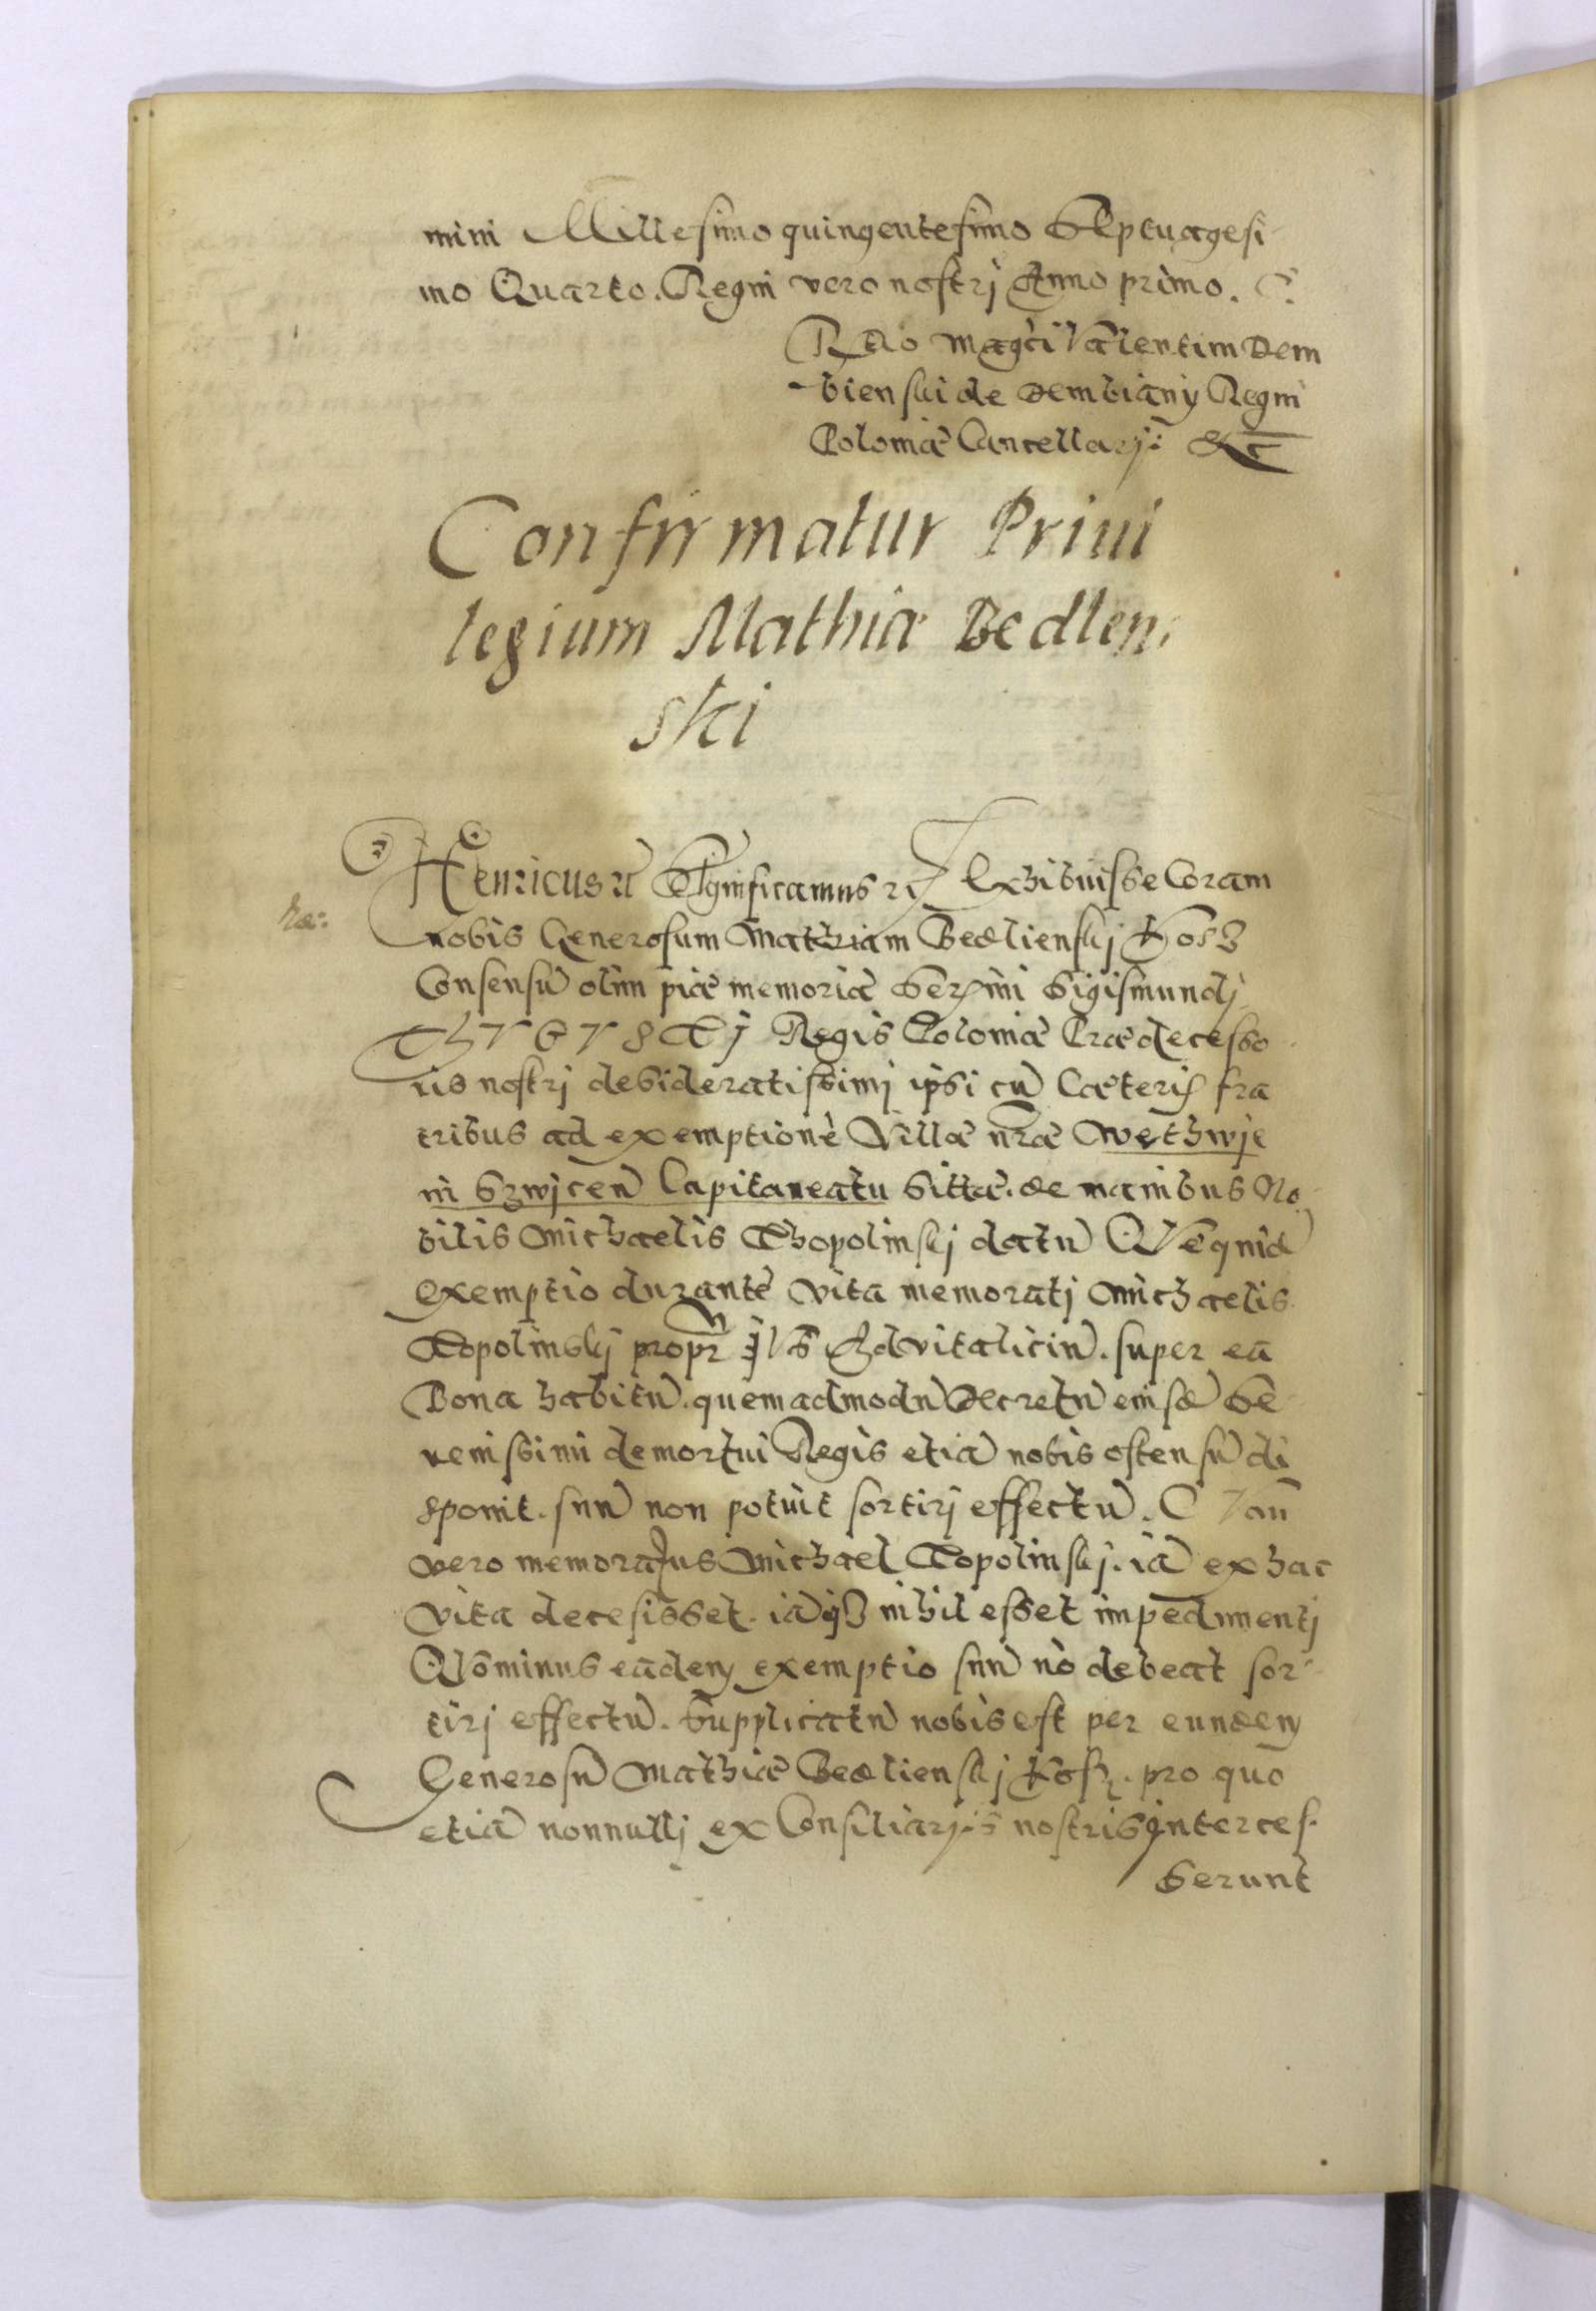 mini Millesimo quingentesimo Septuagesi
mo Quarto. Regni vero nostrj Anno primo.
Rtio Magci Valentini Dem
bienski de Dembiany Regni
Poloniæ Cancellarij: &c
Confirmatur Priui
legium Mathiæ Bedlen
ski
Henricus rc Significamus rc Exhibuisse Coram
nobis Generosum Mathiam Bedlienskj Kosz
Consensū olim piæ memoriæ Serᵐⁱ Sigismundj
Augustj Regis Poloniæ Prædecesso
ris nostrj desideratissimj ipsi cū Cæteris fra
tribus ad exemptionē Villæ nræ Wethwje
in Szwjcen Capitaneatu sittæ. de manibus No
bilis Michaelis Thopolinskj datū Q̄ quid
exemptio durante vita memoratj Michaelis
Topolinskj propr ius Advitaliciū. super eā
Bona habitū. quemadmodū Decretū eiusd Se
renissimi demortui Regis etiā nobis ostensū di
sponit. suū non potuit sortirj effectū. Cū
vero memoratus Michael Topolinskj. iā ex hac
vita decesisset. iāq nihil esset impedimentj
Qōminus eadem exemptio suū nō debeat sor
tirj effectū. Supplicatū nobis est per eundem
Generosū Mathiā Bedlienskj Kosz. pro quo
etiā nonnullj ex Consiliarijs nostris interces
serunt